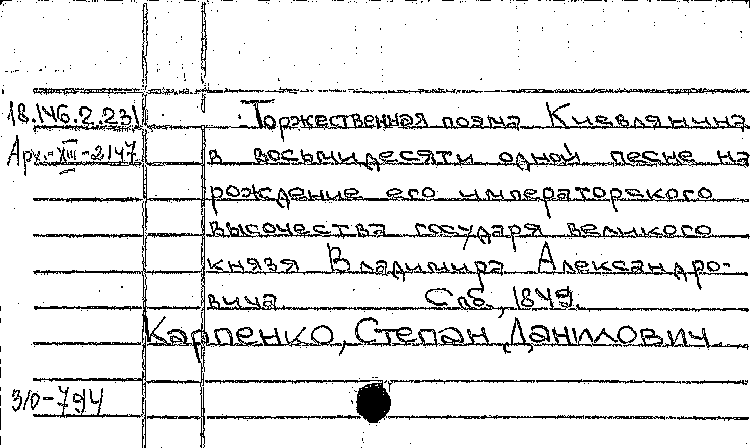 18.146.2.231 Торжественная поэма Киевлянина
Арх.-XIII-2147 в восьмидесяти одной песне на
рождение его императорского
высочества государя великого
князя Владимира Александро-
вича Спб, 1849.
Карпенко, Степан Данилович
3/0-794